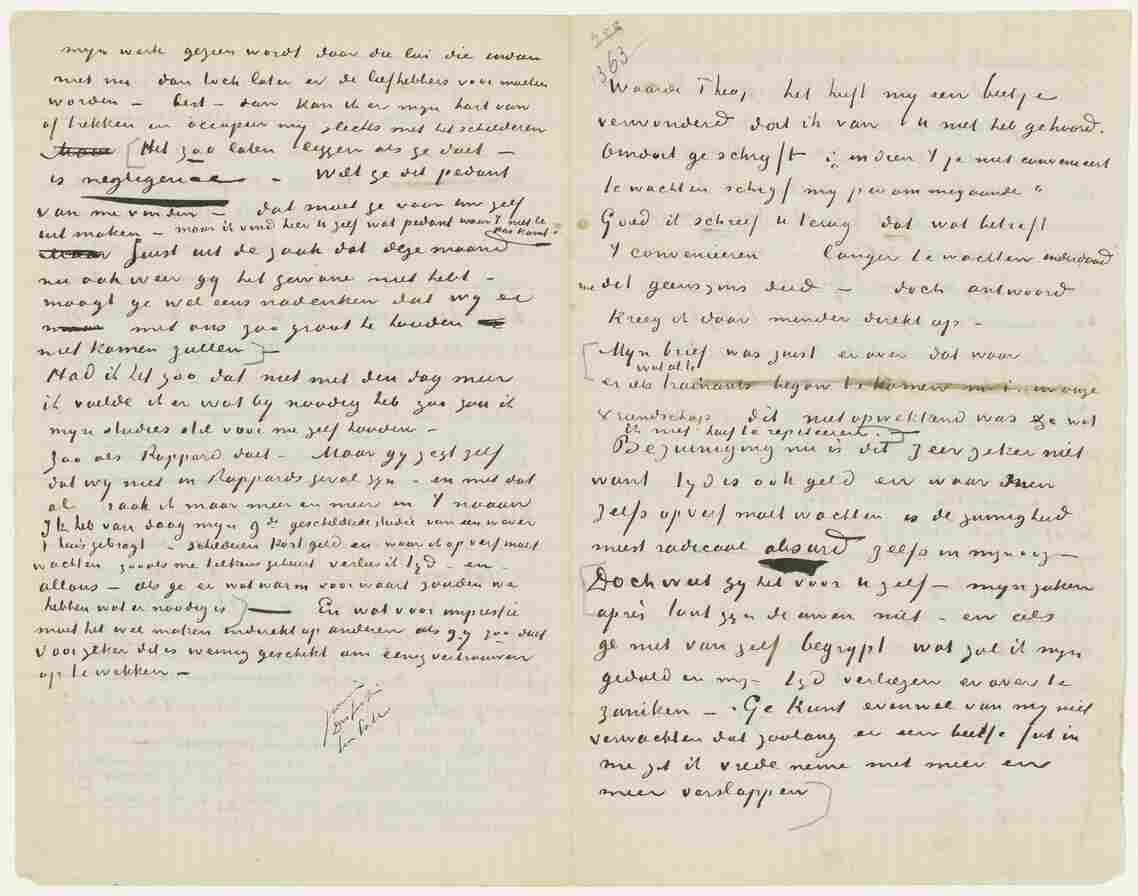 myn werk gezien wordt daar die lui die er dan
niet nu dan toch later er de liefhebbers voor moeten
worden – best – dan kan ik er myn hart van
af trekken en occupeer my slechts met het schilderen
Het zoo laten leggen als ge doet –
is negligence – Wilt ge dit pedant
van me vinden – dat moet ge voor uw zelf
uit maken – maar ik vind heer U zelf wat pedant waar 't niet te
pas komt.
Juist uit de zaak dat deze maand
nu ook weer gy het gewone niet hebt –
moogt ge wel eens nadenken dat wy er
met ons zoo groot te houden
niet komen zullen –
Had ik het zoo dat niet met den dag meer
ik voelde ik er wat by noodig heb zoo zou ik
myn studies stil voor me zelf houden –
Zoo als Rappard doet – Maar gy zegt zelf
dat wy niet in Rappards geval zyn – en met dat
al raak ik maar meer en meer in 't naauw
Ik heb van daag myn 9de geschilderde studie van een wever
t huis gebragt – schilderen kost geld en waar ik op verf moet
wachten zooals me telkens gebeurt verlies ik tyd – en –
allons – als ge er wat warm voor waart zouden we
hebben wat er noodig is – En wat voor impressie
moet het wel maken indirekt op anderen als gy zoo doet
Voorzeker dit is weinig geschikt om eenig vertrouwen
op te wekken –
363
Waarde Theo, het heeft my een beetje
verwonderd dat ik van U niet heb gehoord.
Omdat ge schryft : „indien 't je niet convenieert
te wachten schryf my per ommegaande"
Goed ik schreef U terug dat wat betreft
't convenieren Langer te wachten inderdaad
me dit geenszins deed – doch antwoord
kreeg ik daar minder direkt op –
Myn brief was juist er over dat waar
wat al te
er als begon te komen in onze
vriendschap dit niet opwekkend was &c wat
ik niet hoef te repeteeren.
Bezuiniging nu is dit zeer zeker niet
want tyd is ook geld en waar men
zelfs op verf moet wachten is de zuinigheid
meest radicaal absurd zelfs in myn oog –
Doch weet gy het voor U zelf – myn zaken
après tout zyn de uwen niet – en als
ge niet van zelf begrypt wat zal ik myn
geduld en myn tyd verliezen er over te
zaniken – Ge kunt evenwel van my niet
verwachten dat zoolang er een beetje fut in
me zit ik vrede neme met meer en
meer verslappen